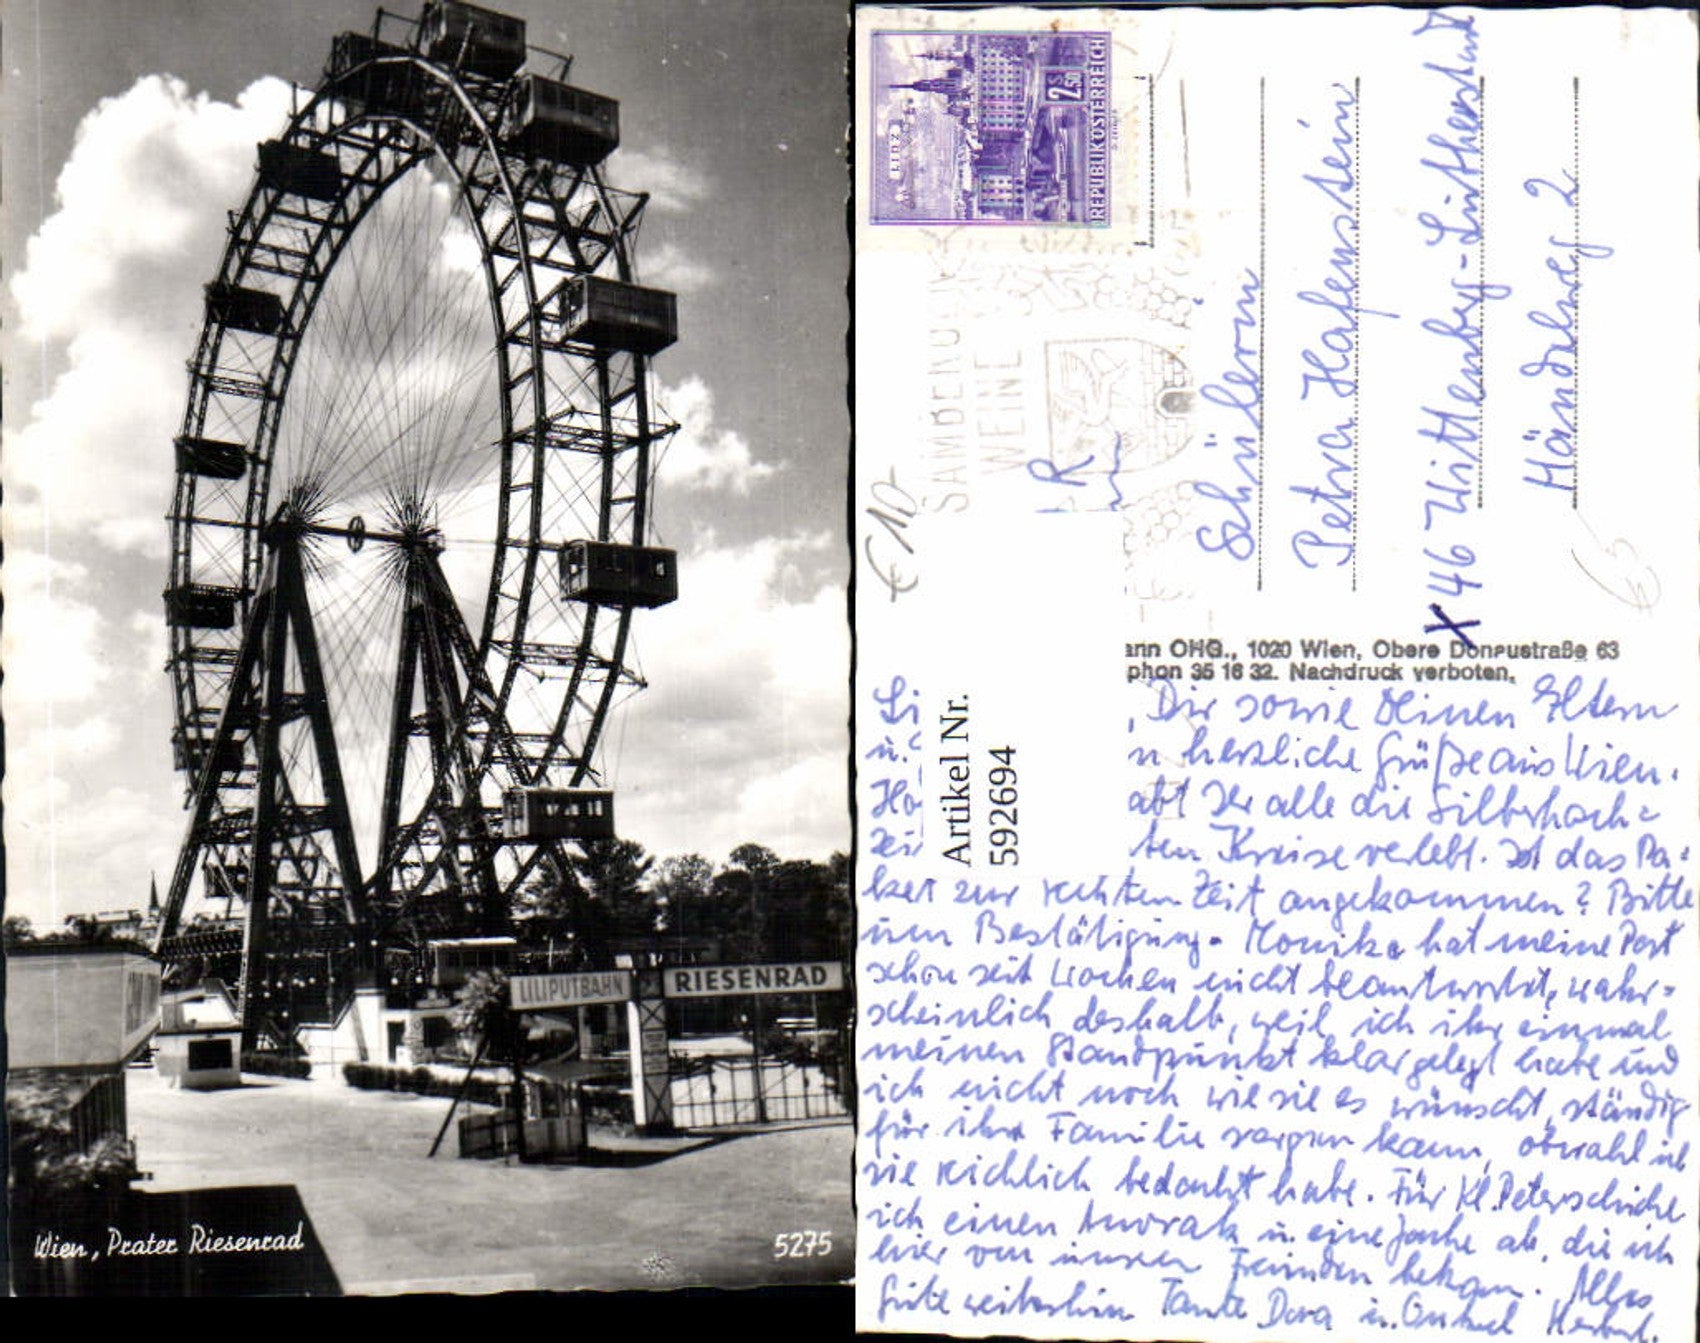 LILIPUTBAHN
RIESENRAD
Wien, Prater Riesenrad
5275
LINZ
2.50
S
REPUBLIK ÖSTERREICH
WEINE
R
€ 10
€ 5
Schülerin
Petra Hafenstein
X 46 Wittenberg-Lutherstadt
Händelweg 2
ann OHG., 1020 Wien, Obere Donaustraße 63
phon 35 16 32. Nachdruck verboten.
Artikel Nr.
592694
Li , Dir sowie Deinen Eltern
u. n herzliche Grüße aus Wien.
Ha abt Ihr alle die Silberhoch=
zei ten Kreise verlebt. Ist das Pa=
ket zur rechten Zeit angekommen? Bitte
um Bestätigung. Monika hat meine Post
schon seit Wochen nicht beantwortet, wahr=
scheinlich deshalb, weil ich ihr einmal
meinen Standpunkt klar gelegt habe und
ich nicht noch wie sie es wünscht, ständig
für ihre Familie sorgen kann, obwohl ich
sie reichlich bedacht habe. Für Kl. Peter schicke
ich einen Anorak u. eine Jacke ab, die ich
hier von unseren Freunden bekam. Alles
Gute weiterhin Tante Dora u. Onkel